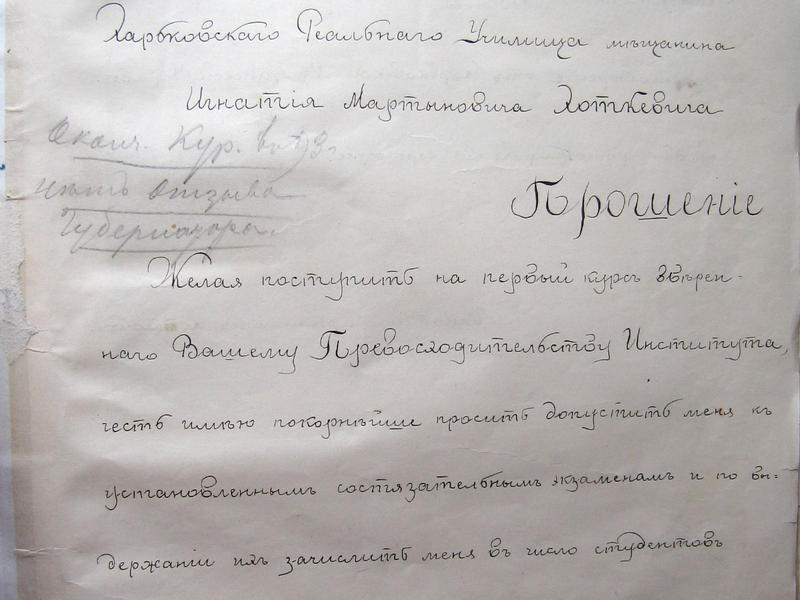 Харьковскаго Реальнаго Училища мѣщанина
Игнатія Мартыновича Хоткевича
Оконч. Кур. въ 93 г.
нѣтъ отзыва
Губернатора.
Прошеніе
Желая поступить на первый курсъ ввѣрен-
наго Вашему Превосходительству Института,
честь имѣю покорнѣйше просить допустить меня къ
установленнымъ состязательнымъ экзаменамъ и по вы-
держаніи ихъ зачислить меня въ число студентовъ